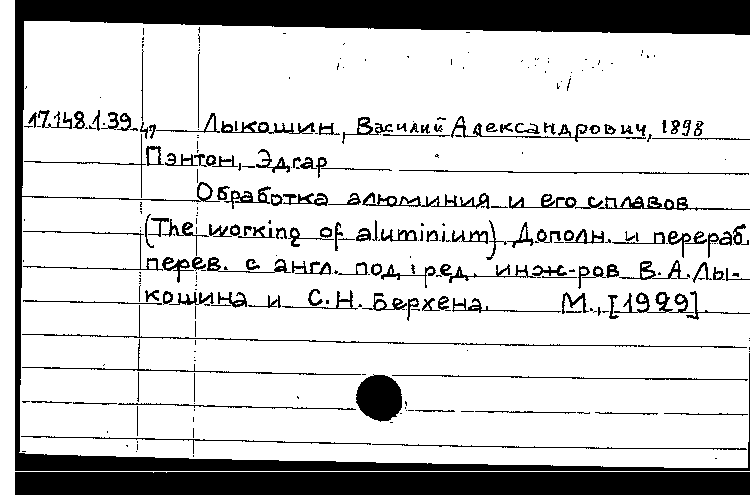 17.148.1.39 47 Лыкошин, Василий Александрович, 1898
Пэнтон, Эдгар
Обработка алюминия и его сплавов
(The working of aluminium). Дополн. и перераб.
перев. с англ. под ред. инж-ров В.А.Лы-
кошина и С.Н.Берхена. М., [1929].